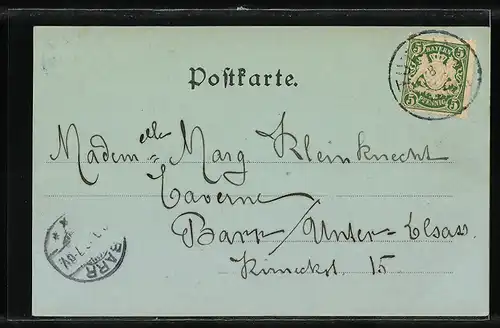 Postkarte.
BAYERN
5 5
5 PFENNIG 5
Madem elle Marg Kleinknecht
Taverne
Barr / Unter-Elsass
15
BARR